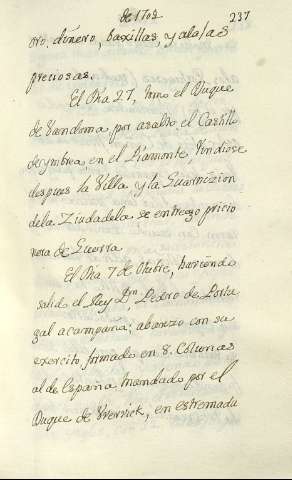 de 1703
237
oro, dinero, baxillas, y alajas
preciosas.
El Dia 27, tomo el Duque
de Vandoma por asalto el Castillo
de ymbrea, en el Piamonte, rindiose
despues la Villa y la Guarnizion
dela Ziudadela se entrego pricio
nera de Guerra.
El Dia 7 de Otubre, haviendo
salido el Rey Dn. Pedro de Portu
gal a campaña; abanzo con su
exercito formado en 8. Colunas
al de España mandado por el
Duque de Vervick, en estremadu